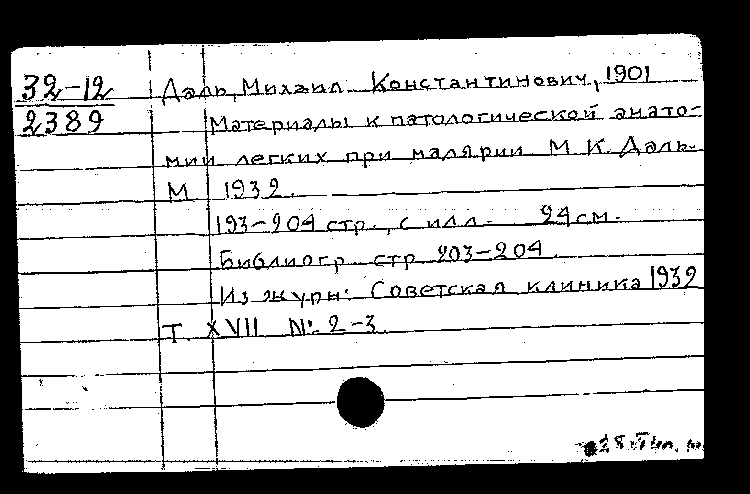 32-12
2389
Даль, Михаил Константинович, 1901
Материалы к патологической анато-
мии легких при малярии М. К. Даль.
М 1932.
193-204 стр., с илл. 24 см.
Библиогр. стр 203-204.
Из журн: Советская клиника 1932
Т. XVII № 2-3.